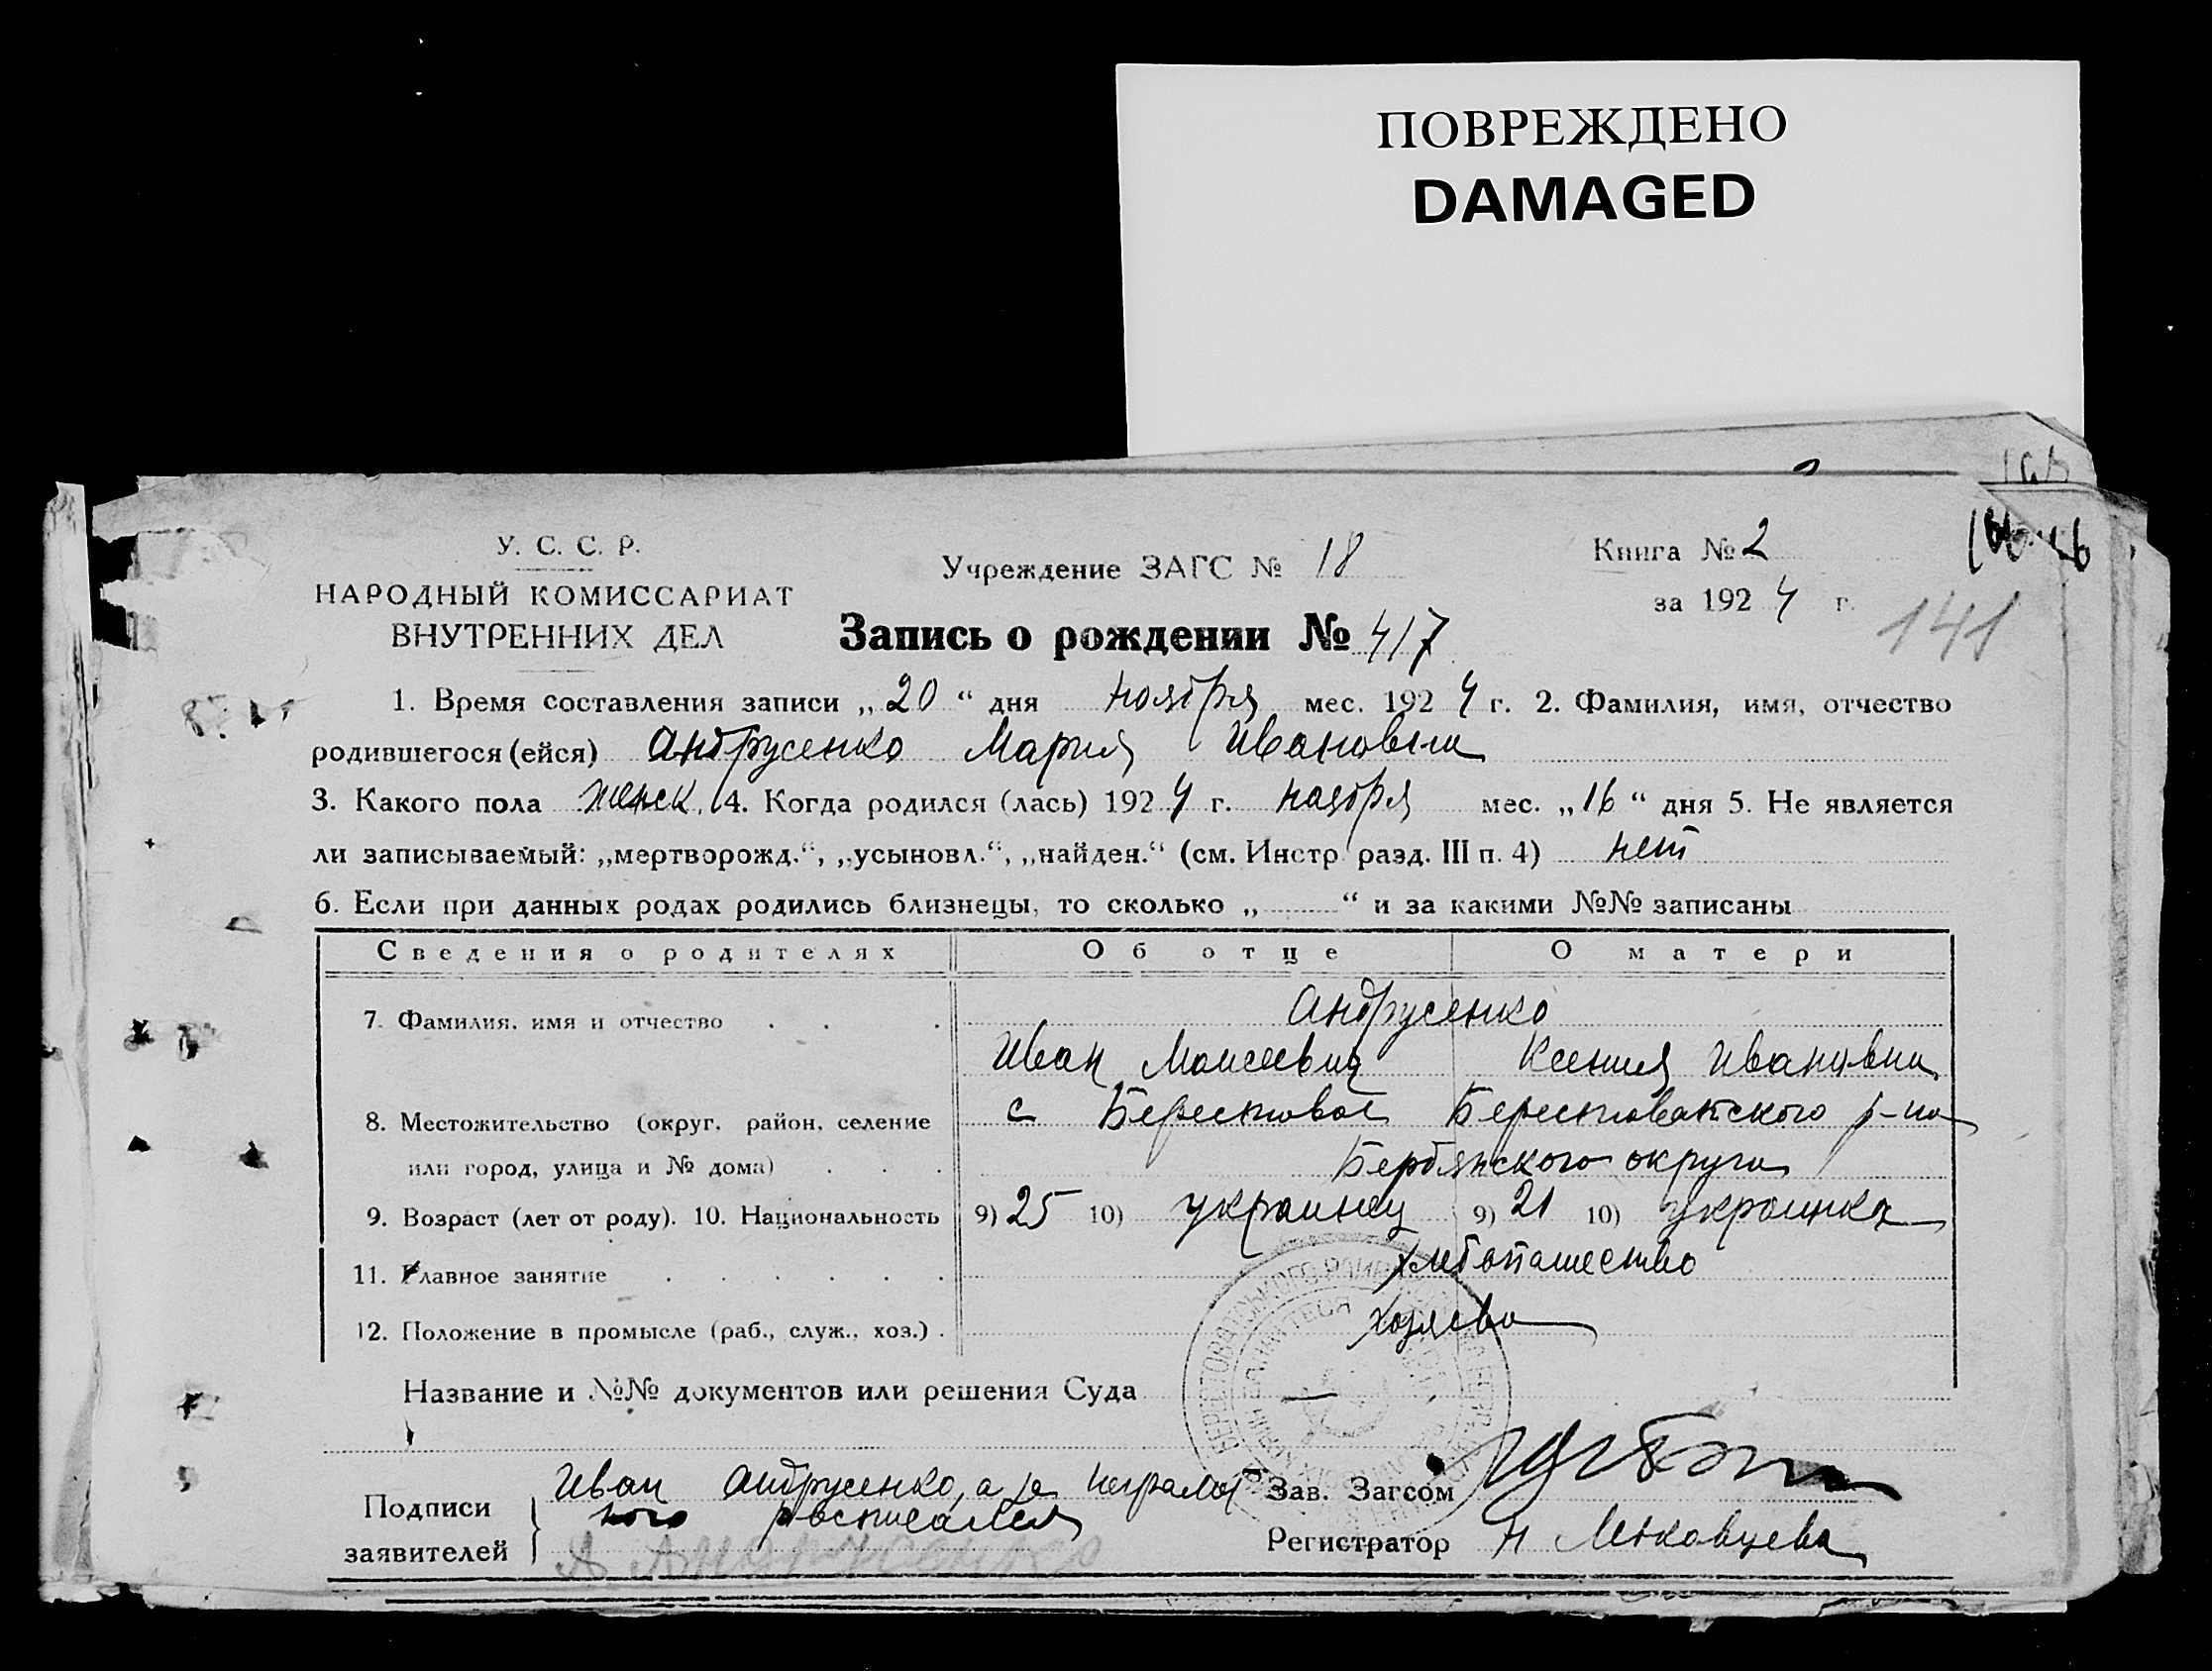 ПОВРЕЖДЕНО
DAMAGED
У. С. С. Р.
НАРОДНЫЙ КОМИССАРИАТ
ВНУТРЕННИХ ДЕЛ
Учреждение ЗАГС № 18
Книга № 2
за 1924 г.
141
Запись о рождении № 417
1. Время составления записи „20“ дня ноября мес. 1924 г. 2. Фамилия, имя, отчество
родившегося (ейся) Андрусенко Мария Ивановна
3. Какого пола женск. 4. Когда родился (лась) 1924 г. ноября мес. „16“ дня 5. Не является
ли записываемый: „мертворожд.“, „усыновл.“, „найден.“ (см. Инстр. разд. III п. 4) нет
6. Если при данных родах родились близнецы, то сколько „ “ и за какими №№ записаны
Сведения о родителях Об отце О матери
Андрусенко
7. Фамилия, имя и отчество
Иван Моисеевич Ксения Ивановна
8. Местожительство (округ, район, селение с Берестовое Берестоватского р-на
или город, улица и № дома) Бердянского округа
9. Возраст (лет от роду). 10. Национальность 9) 25 10) украинец 9) 21 10) украинка
11. Главное занятие хлебопашество
12. Положение в промысле (раб., служ., хоз.) хозяева
Название и №№ документов или решения Суда —
Подписи
заявителей
Иван Андрусенко, а за неграмот
ного росписался
Андрусенко
Зав. Загсом
Регистратор Н